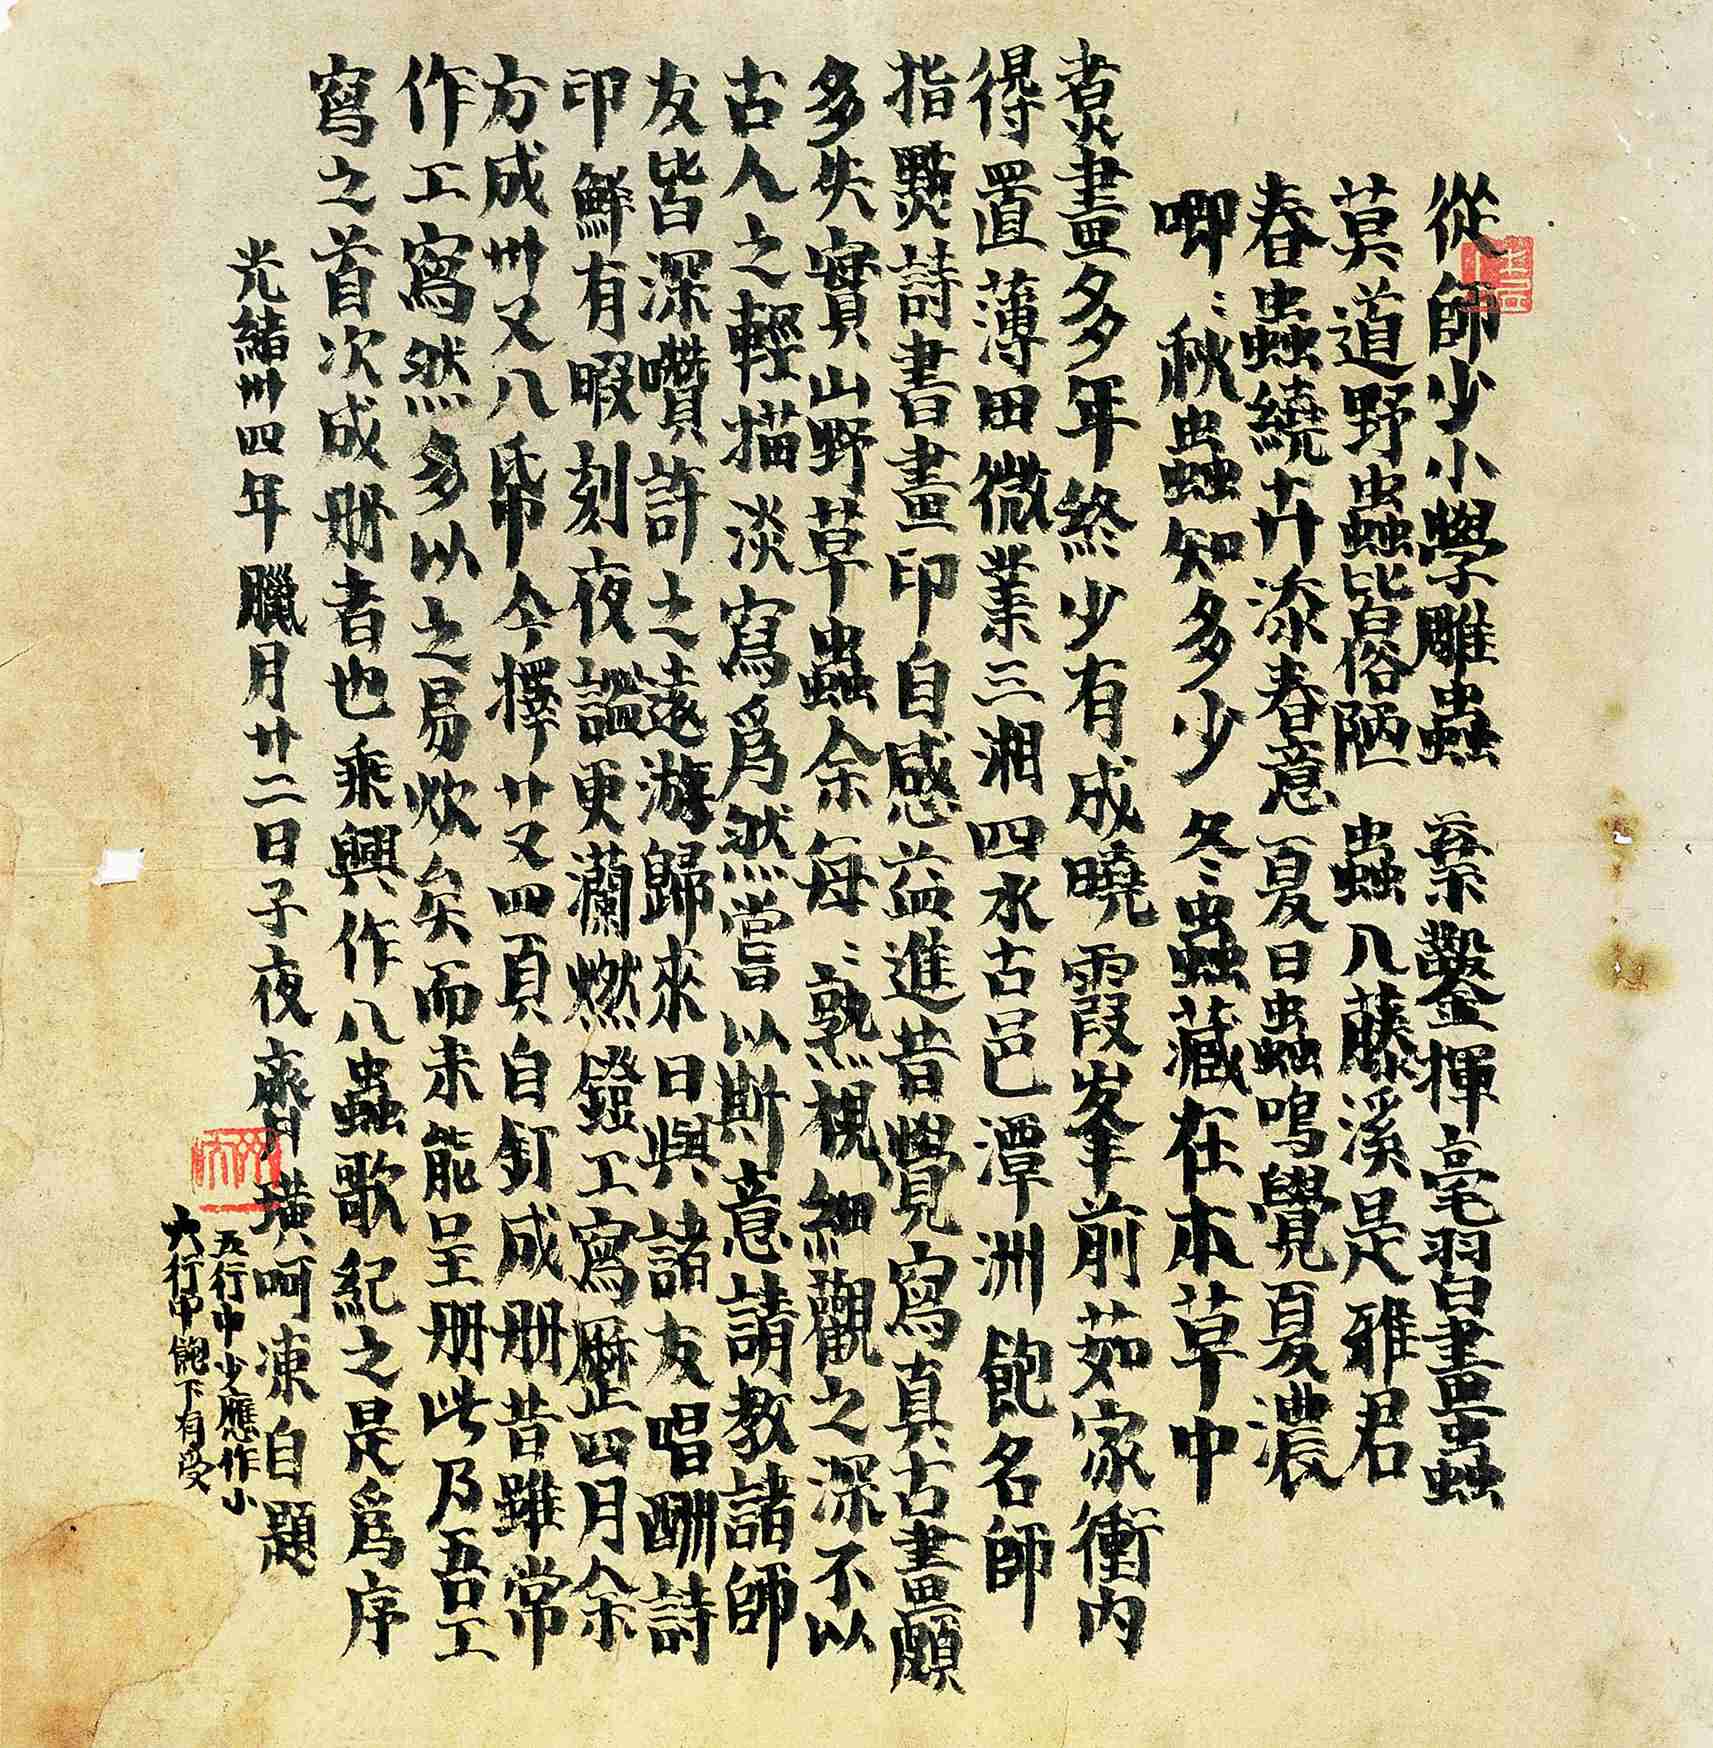 從師少小學雕蟲 棄鑿揮毫習畫蟲
莫道野蟲皆俗陋 蟲入藤溪是雅君
春蟲繞卉添春意 夏日蟲鳴覺夏濃
唧〻秋蟲知多少 冬〻蟲藏在本草中
煑畫多年終少有成曉霞峯前茹家衝內
得置薄田微業三湘四水古邑潭洲飽名師
指點詩書畫印自感益進昔覺寫真古畫頗
多失實山野草蟲余每〻熟視細觀之深不以
古人之輕描淡寫爲然嘗以斯意請教諸師
友皆深囋許之遠游歸來日與諸友唱酬詩
印鮮有暇刻夜謐更瀾燃鐙工寫歷四月余
方成卅又八幀今擇廿又四頁自釘成册昔雖常
作工寫然多以之易炊矣而未能呈册此乃吾工
寫之首次成册者也乘興作八蟲歌紀之是爲序
光緒卅四年臘月廿二日子夜齊璜呵凍自題
五行中少應作小
六行中飽下有受